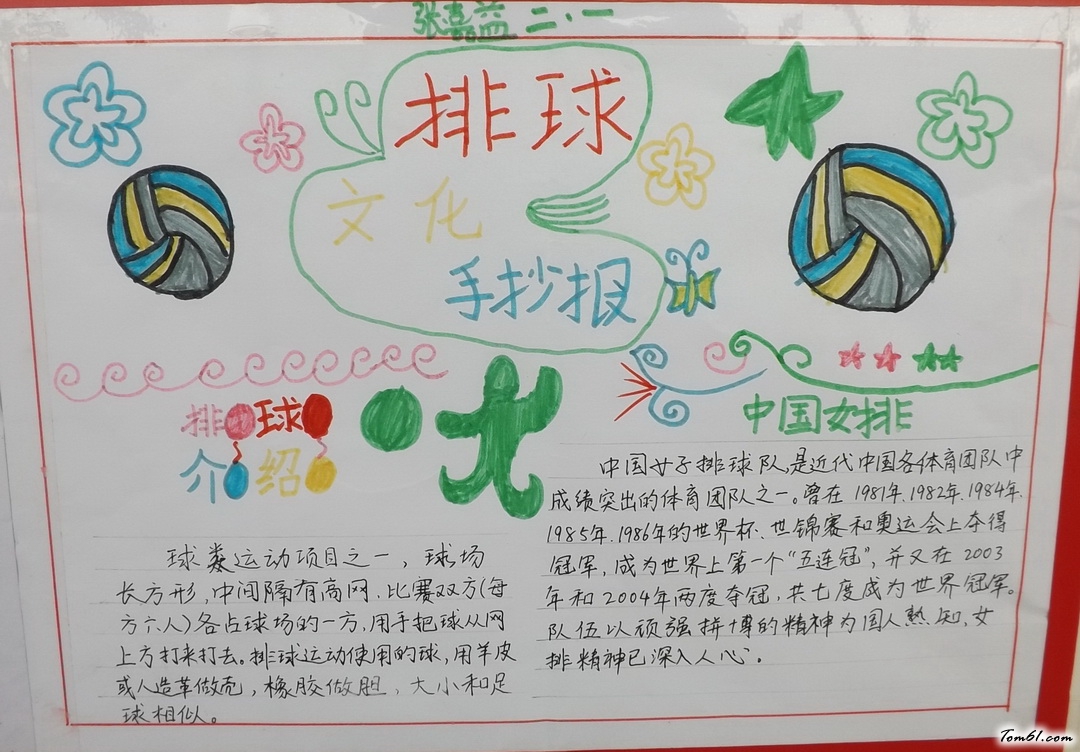 张嘉益 二·一
排球
文化
手抄报
排球
介绍
球类运动项目之一，球场
长方形，中间隔有高网，比赛双方(每
方六人)各占球场的一方，用手把球从网
上方打来打去。排球运动使用的球，用羊皮
或人造革做壳，橡胶做胆，大小和足
球相似。
中国女排
中国女子排球队是近代中国各体育团队中
成绩突出的体育团队之一。曾在1981年、1982年、1984年、
1985年、1986年的世界杯、世锦赛和奥运会上夺得
冠军，成为世界上第一个“五连冠”，并又在2003
年和2004年两度夺冠，共七度成为世界冠军。
队伍以顽强拼博的精神为国人熟知，女
排精神已深入人心。
Tom61.com